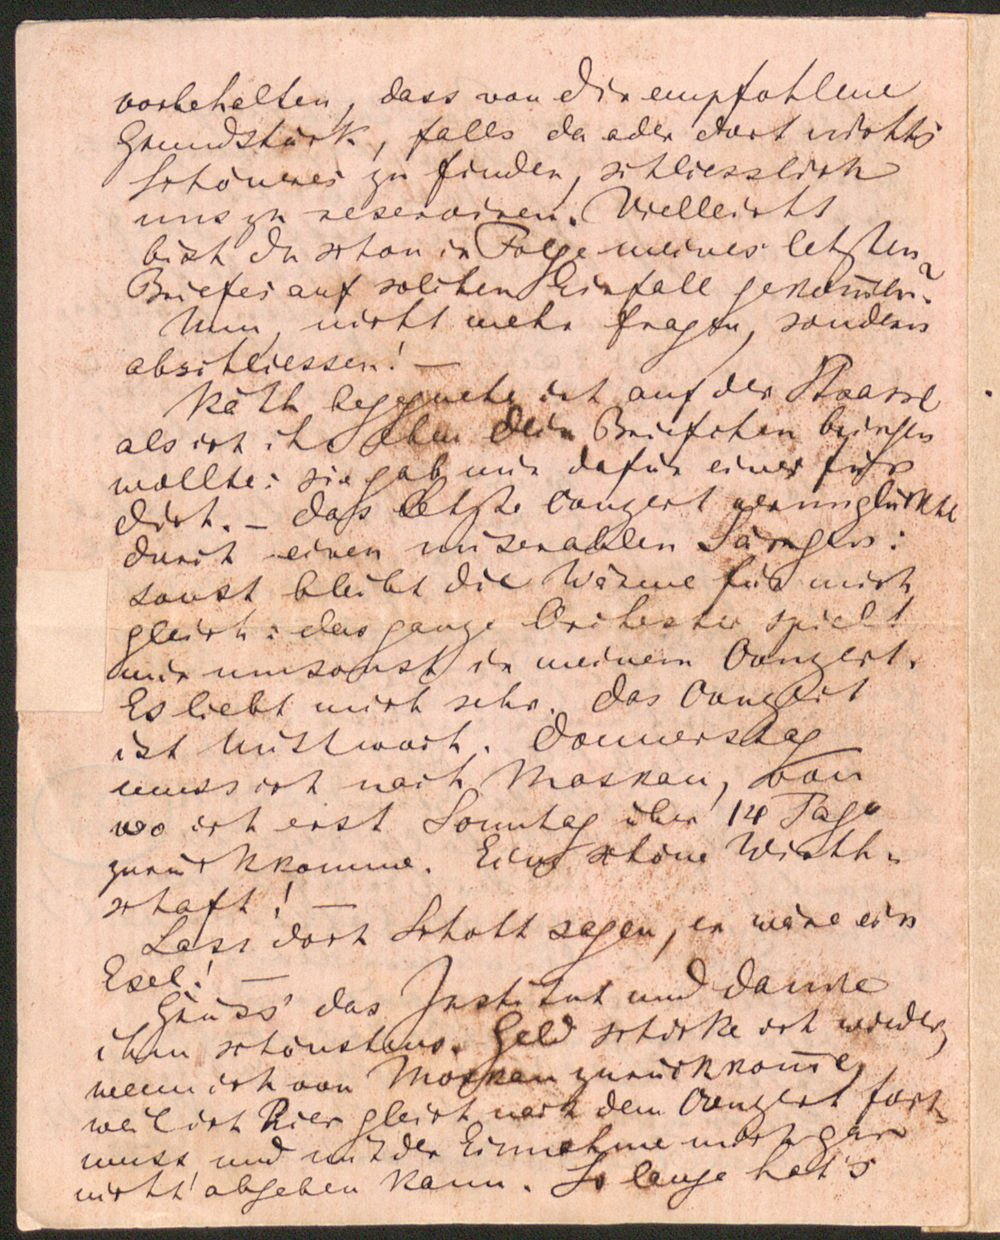 vorbehalten, dass von Dir empfohlene
Grundstück, falls da oder dort nichts
Schöneres zu finden, schliesslich
uns zu reserviren. Vielleicht
bist du schon in Folge meines letzten
Briefes auf solchen Einfall gekom̅en?
Nun, nicht mehr fragen, sondern
abschliessen! —
Käth begegnete ich auf der Strasse
als ich ihr eben dein Briefchen bringen
wollte: sie gab mir dafür einen für
dich. — Das letzte Conzert verunglückte
durch einen miserablen Sänger:
sonst bleibt die Wärme für mich
gleich: das ganze Orchester spielt
mir umsonst in meinem Conzert.
Es liebt mich sehr. Das Conzert
ist Mittwoch. Donnerstag
muss ich nach Moskau, von
wo ich erst Sonntag über 14 Tage
zurückkomme. Eine schöne Wirth-
schaft! —
Lass doch Schott sagen, er wäre ein
Esel! —
Grüss' das Institut und danke
ihm schönstens. Geld schicke ich wieder,
wenn ich von Moskau zurückkom̅e,
weil ich hier gleich nach dem Conzert fort
muss, und mit der Einnahme mich gar
nicht abgeben kann. So lange hat's